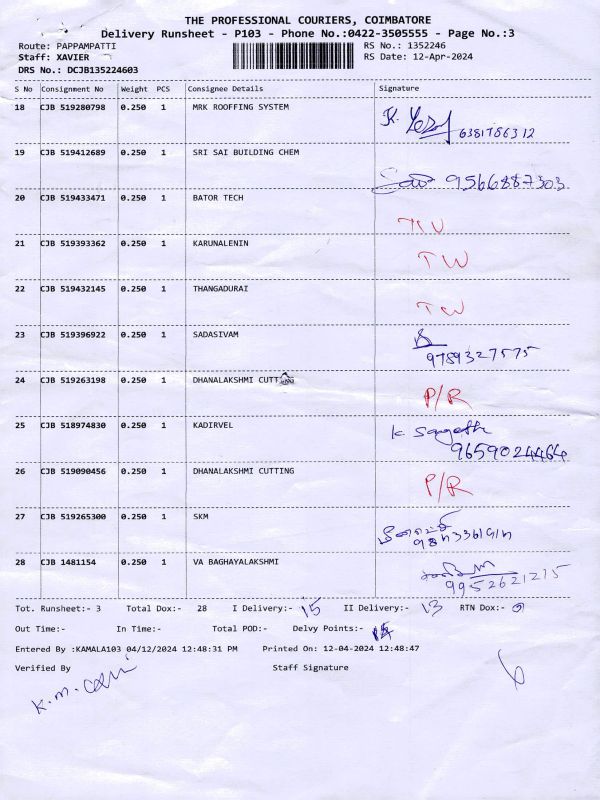 THE PROFESSIONAL COURIERS, COIMBATORE
Delivery Runsheet - P103 - Phone No.:0422-3505555 - Page No.:3
Route: PAPPAMPATTI RS No.: 1352246
Staff: XAVIER RS Date: 12-Apr-2024
DRS No.: DCJB135224603
S No Consignment No Weight PCS Consignee Details Signature
18 CJB 519280798 0.250 1 MRK ROOFFING SYSTEM
K.
19 CJB 519412689 0.250 1 SRI SAI BUILDING CHEM
9566887303
20 CJB 519433471 0.250 1 BATOR TECH
21 CJB 519393362 0.250 1 KARUNALENIN
TW
22 CJB 519432145 0.250 1 THANGADURAI
TW
23 CJB 519396922 0.250 1 SADASIVAM
9789327575
24 CJB 519263198 0.250 1 DHANALAKSHMI CUTTING
P/R
25 CJB 518974830 0.250 1 KADIRVEL
K
9659024464
26 CJB 519090456 0.250 1 DHANALAKSHMI CUTTING
P/R
27 CJB 519265300 0.250 1 SKM
28 CJB 1481154 0.250 1 VA BAGHAYALAKSHMI
9952621215
Tot. Runsheet:- 3 Total Dox:- 28 I Delivery:- 15 II Delivery:- 13 RTN Dox:-
Out Time:- In Time:- Total POD:- Delvy Points:-
Entered By :KAMALA103 04/12/2024 12:48:31 PM Printed On: 12-04-2024 12:48:47
Verified By Staff Signature
K.M.